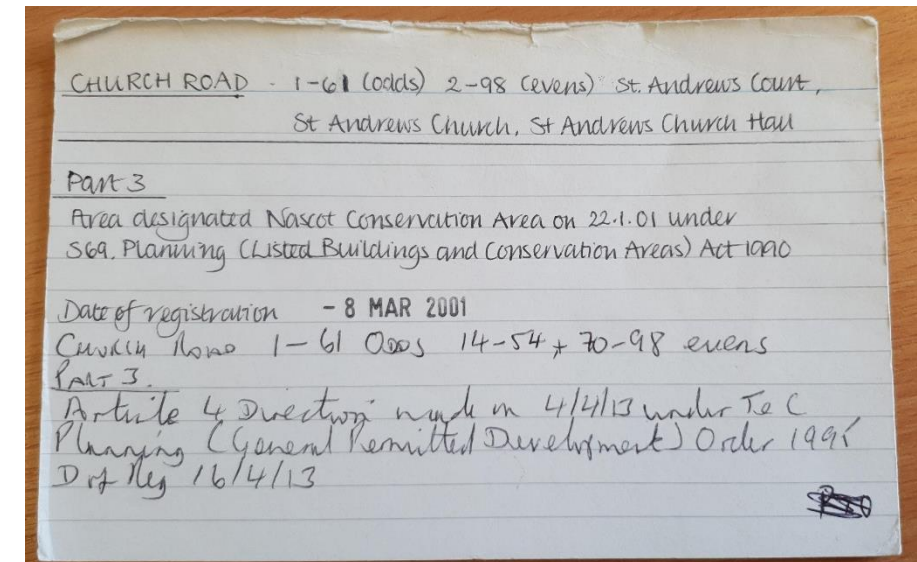 CHURCH ROAD - 1-61 (odds) 2-98 (evens) St. Andrews Court,
St Andrews Church, St Andrews Church Hall
Part 3
Area designated Nascot Conservation Area on 22.1.01 under
S69. Planning (Listed Buildings and Conservation Areas) Act 1990
Date of registration - 8 MAR 2001
CHURCH ROAD 1-61 ODDS 14-54 + 70-98 evens
PART 3.
Article 4 Direction made on 4/4/13 under T&C
Planning (General Permitted Development) Order 1995
D of Reg 16/4/13